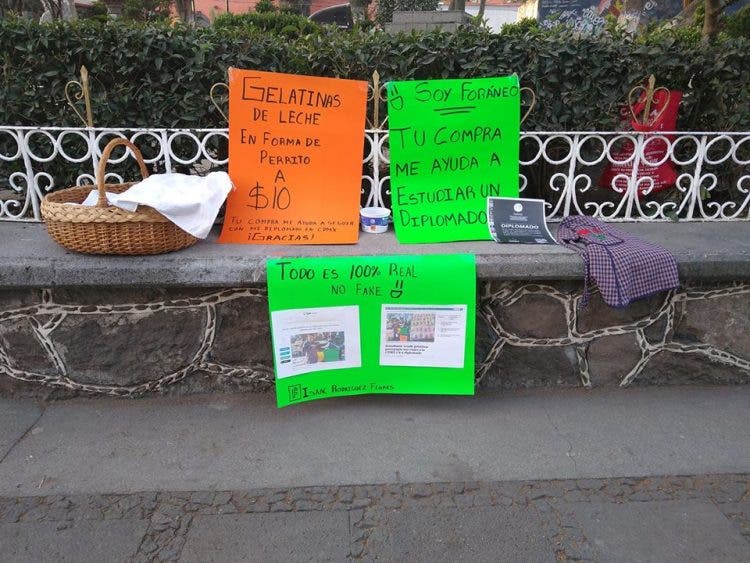 GELATINAS
DE LECHE
EN FORMA DE
PERRITO
A
$10
TU COMPRA ME AYUDA A SEGUIR
CON MI DIPLOMADO EN CDMX
¡GRACIAS!
SOY FORÁNEO
TU COMPRA
ME AYUDA A
ESTUDIAR UN
DIPLOMADO
DIPLOMADO
TODO ES 100% REAL
NO FAKE
ISAAC RODRIGUEZ FLORES